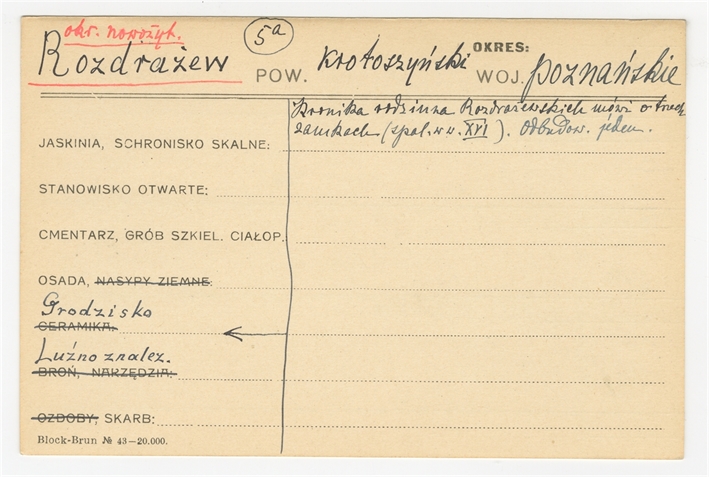 okr. nowożyt.
Rozdrażew
5a
POW. Krotoszyński
OKRES:
WOJ. poznańskie
Kronika rodzinna Rozdrażewskich mówi o trzech
zamkach (spal. w w. XVI). Odbudow. jeden.
JASKINIA, SCHRONISKO SKALNE:
STANOWISKO OTWARTE:
CMENTARZ, GRÓB SZKIEL. CIAŁOP.
OSADA, NASYPY ZIEMNE:
Grodzisko
CERAMIKA:
Luźno znalez.
BROŃ, NARZĘDZIA:
OZDOBY, SKARB:
Block-Brun № 43—20.000.